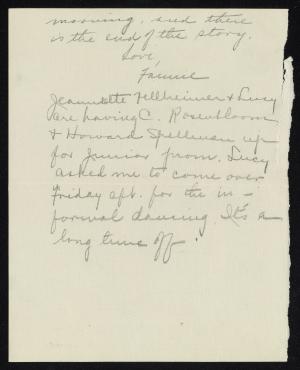 morning, and there
is the end of the story.
Love,
Fannie
Jeannette Fellheimer & Lucy
are having C. Rosenbloom
& Howard Spellman up
for Junior prom. Lucy
asked me to come over
Friday aft. for the in-
formal dancing. It's a
long time off!